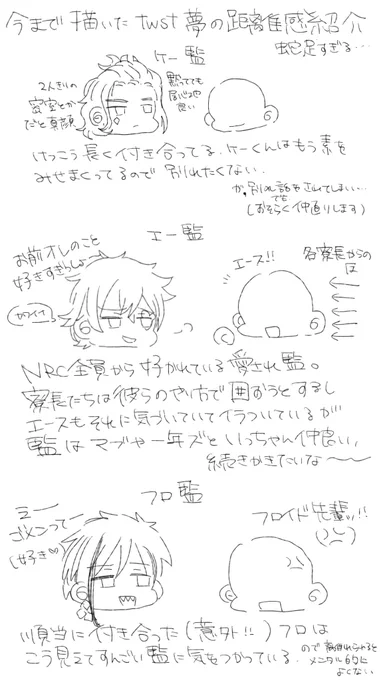 今まで描いたtwst夢の距離感紹介
蛇足すぎる…
ケー監
2人きりの
密室とか
だと真顔
黙ってても
居心地
良い
けっこう長く付き合ってる。ケーくんはもう素を
みせまくってるので別れたくない。
が、別れ話をされてしまい…
でも
(おそらく仲直りします)
エー監
お前オレのこと
好きすぎっしょ~
エース!!
各寮長からの
NRC全員から好かれている愛され監。
寮長たちは彼らのやり方で囲おうとするし
エースもそれに気づいていてイラついているが
監はマブや一年ズといっちゃん仲良い。
続きかきたいな~
フロ監
ゴメンって~
(好き♡)
フロイド先輩ッ!!
順当に付き合った(意外!!)フロは
こう見えてすんごい監に気をつかっている。
ので
メンタル的に
よくない